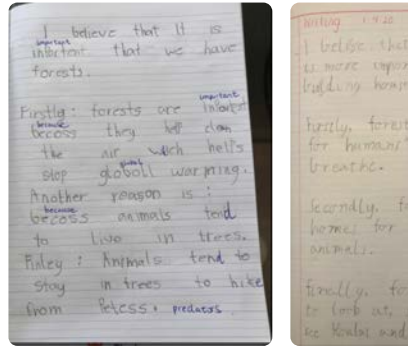 I believe that It is
important
intortent that we have
forests.
Firstly: forests are intortent
important
because
becoss they help clean
the air wich hell's
global
stop globoll warming.
Another reason is:
because
becoss animals tend
to live in trees.
Finley: Animals tend to
stay in trees to hike
from Petess. predators.
Writing 1.9.20
I belive that
is more impor
building home
firstly, forest
for humans
breathe.
Secondly, fo
homes for
animals.
finally, fo
to look at,
see Koalas and